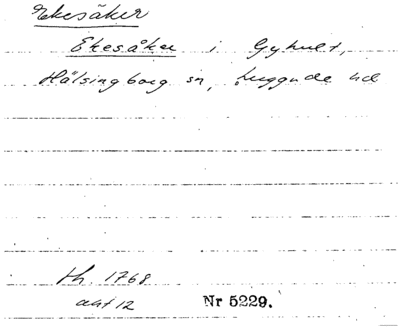 Ekesåker
Ekesåker i Gyhult,
Hälsingborg sn, Luggude hd
th. 1768
akt 12 Nr 5229.